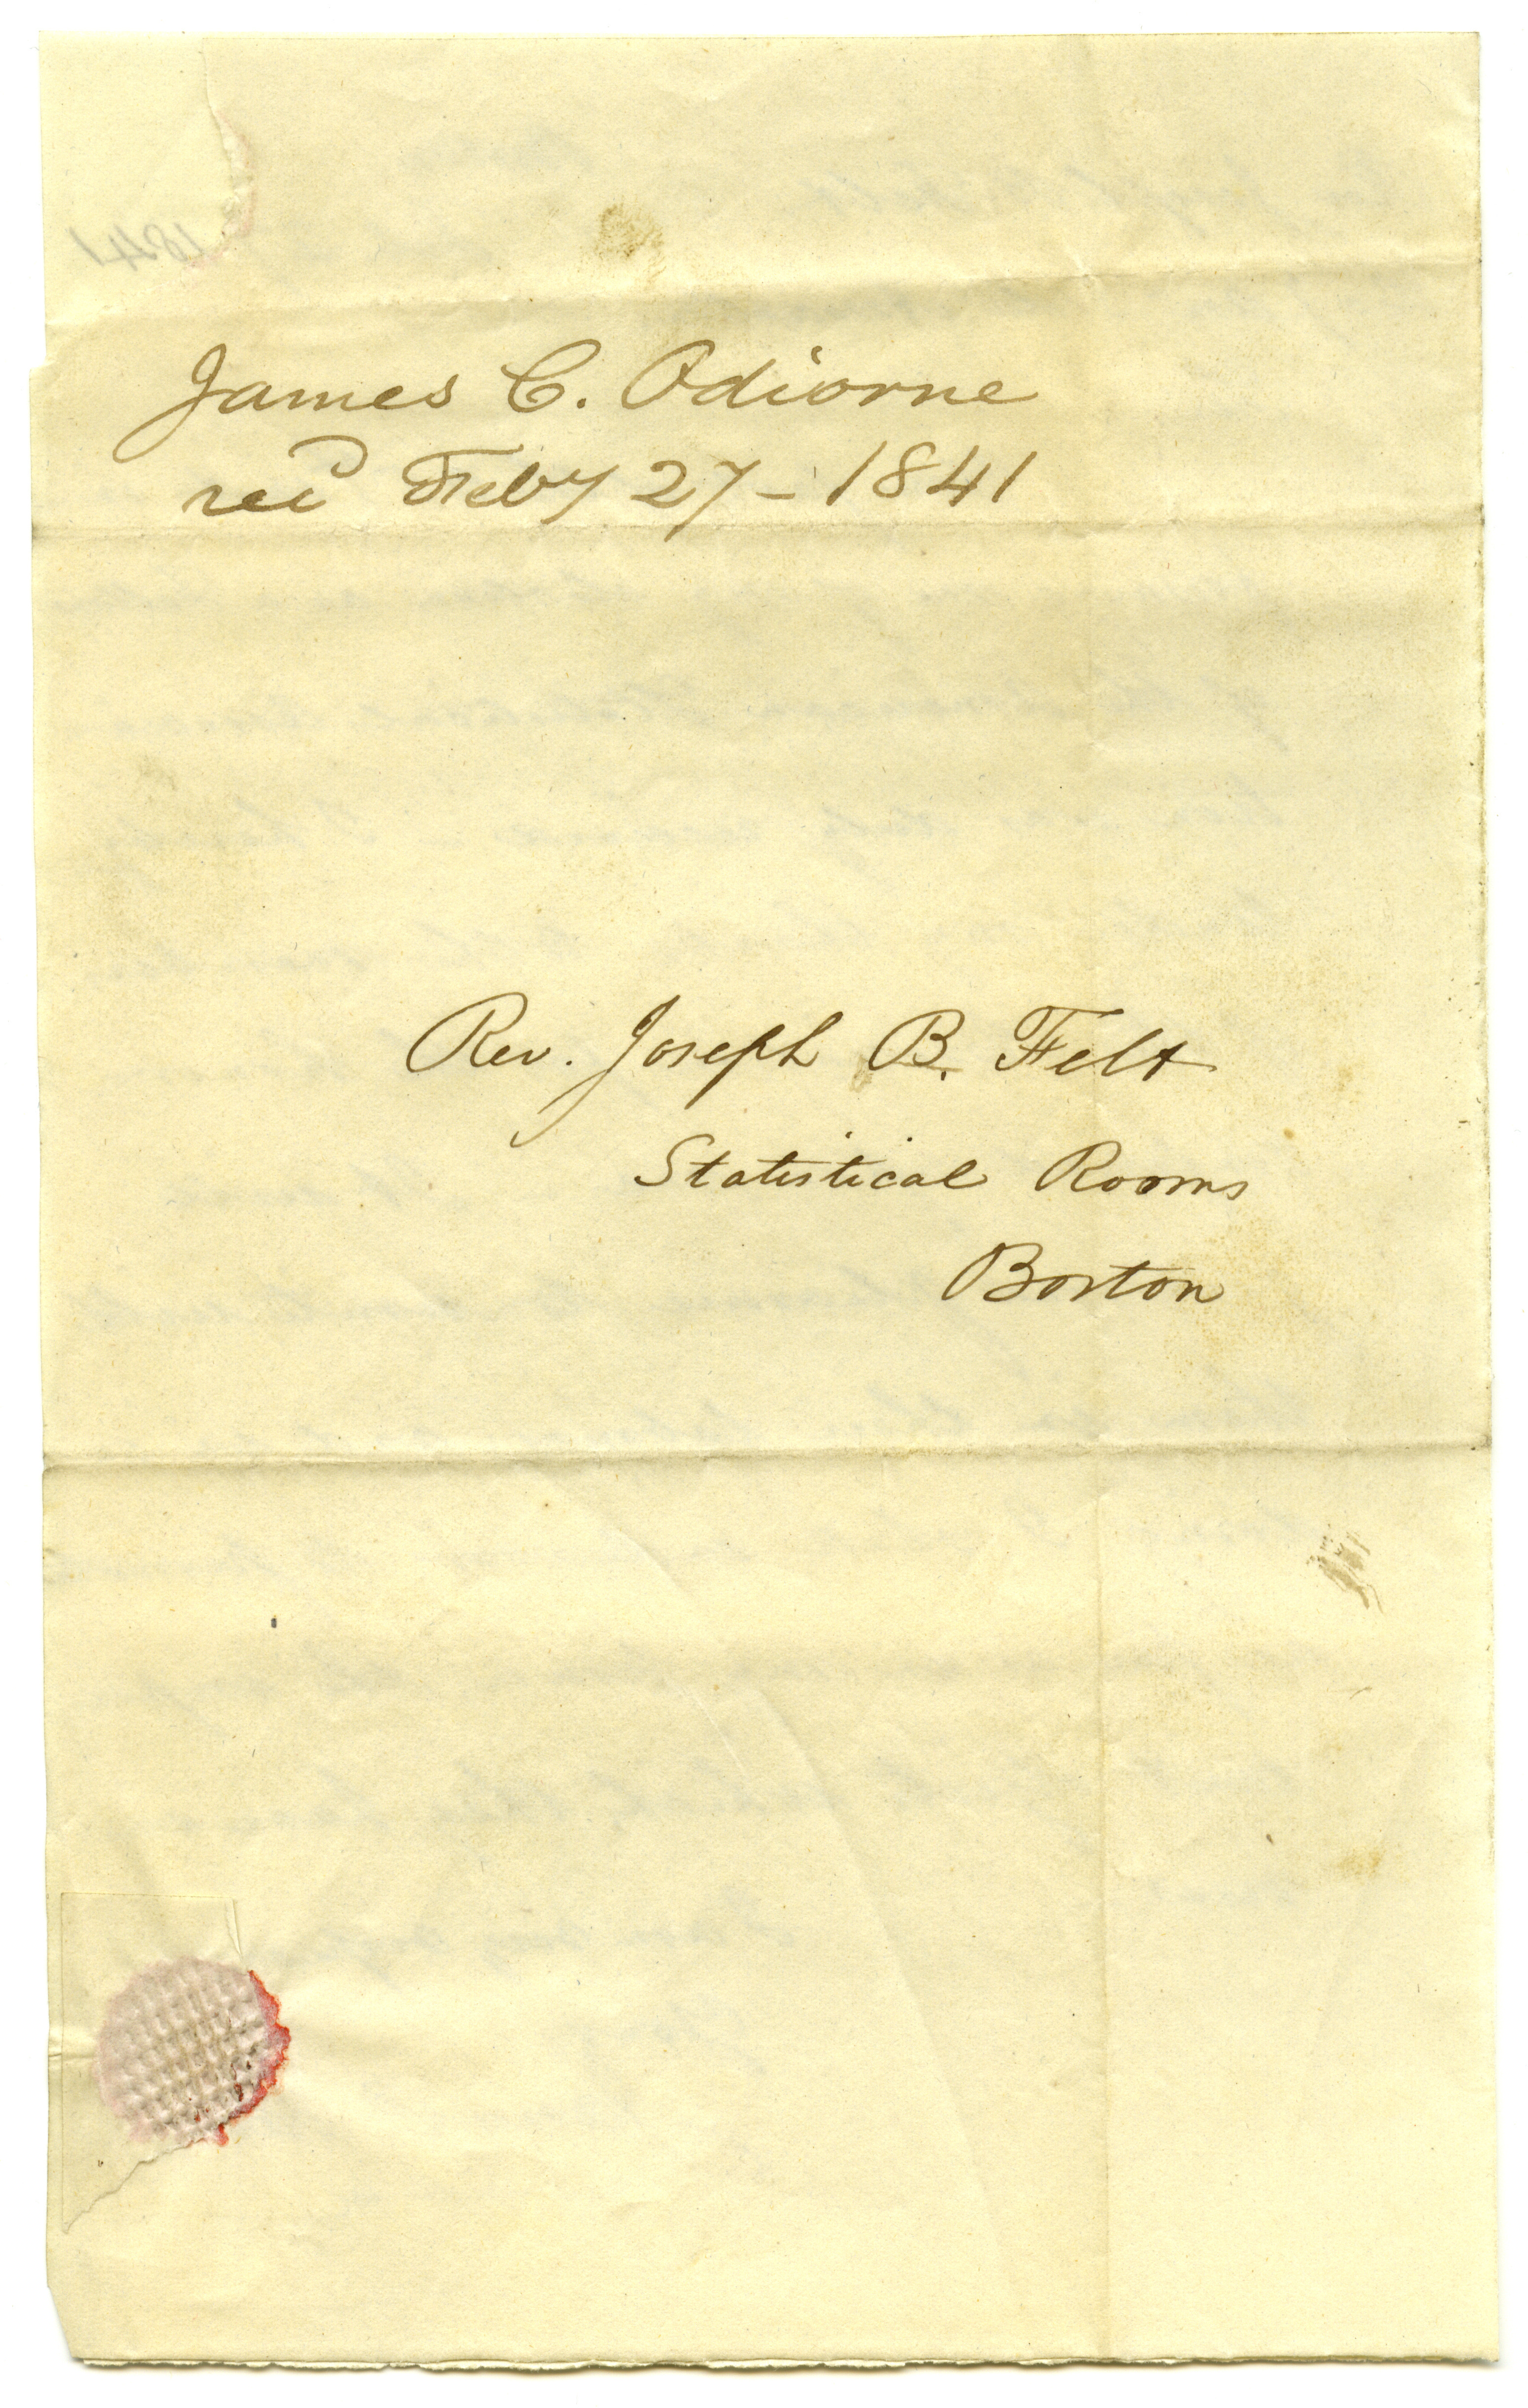 James C. Odiorne
recd Feby 27 - 1841
Rev. Joseph B. Felt
Statistical Rooms
Boston
1841